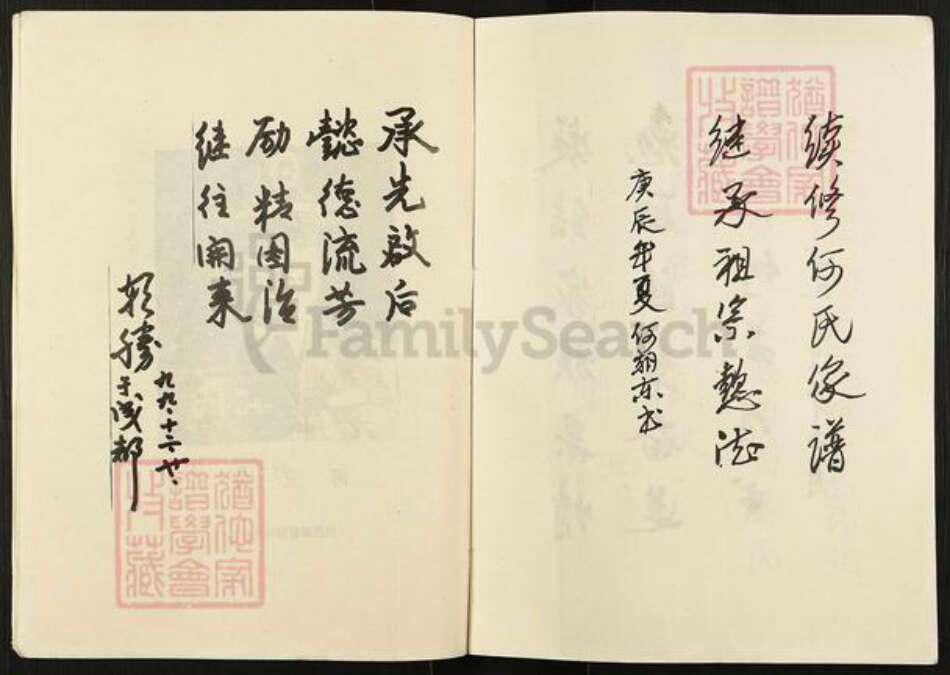 续修何氏家谱
继承祖宗懿德
庚辰年夏何翔东书
承先启后
懿德流芳
励精图治
继往开来
胜于成都
九九·十二·廿·
猶他家
譜學會
收藏
猶他家
譜學會
收藏
FamilySearch